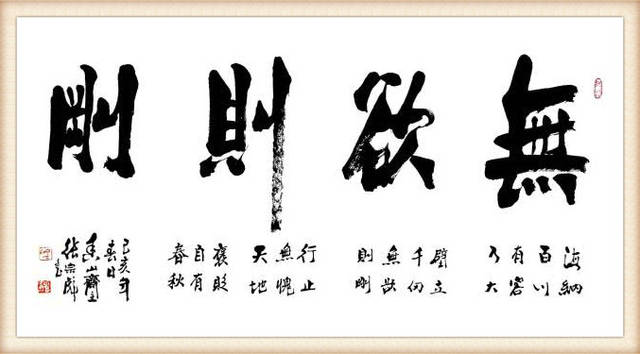 無欲則剛
海納
百川
有容
乃大
壁立
千仞
無欲
則剛
行止
無愧
天地
褒貶
自有
春秋
己亥年
春日